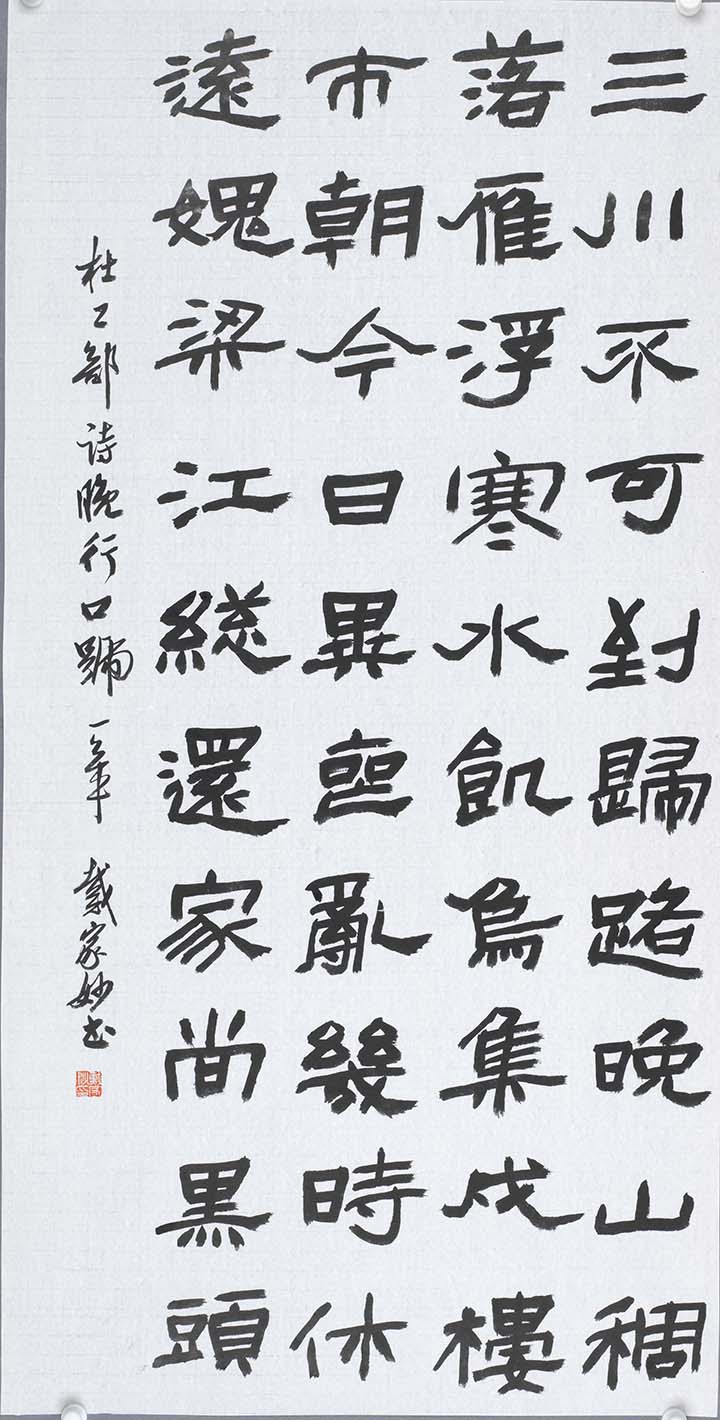 三川不可到歸路晚山稠
落雁浮寒水飢烏集戍樓
市朝今日異喪亂幾時休
遠媿梁江總還家尚黑頭
杜工部詩晚行口號一章 戴家妙書